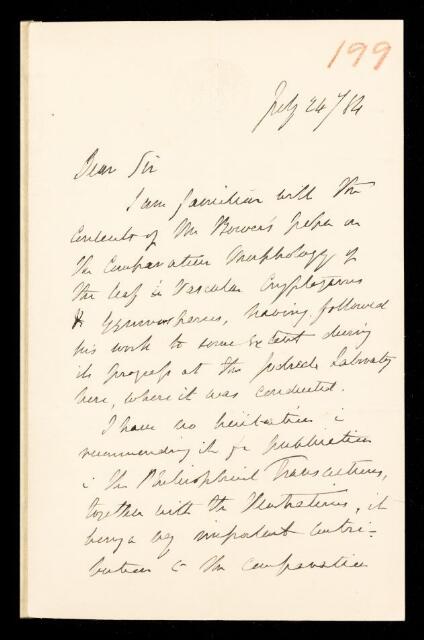 199
July 24/84
Dear Sir
I am familiar with the
contents of Mr Bower's paper on
the Comparative Morphology of
the leaf in Vascular Cryptogams
& Gymnosperms, having followed
his work to some extent during
its progress at the Jodrell Laboratory
here, where it was conducted.
I have no hesitation in
recommending it for publication
in the Philosophical Transactions,
together with the Illustrations, it
being a very important contri-
bution to the comparative